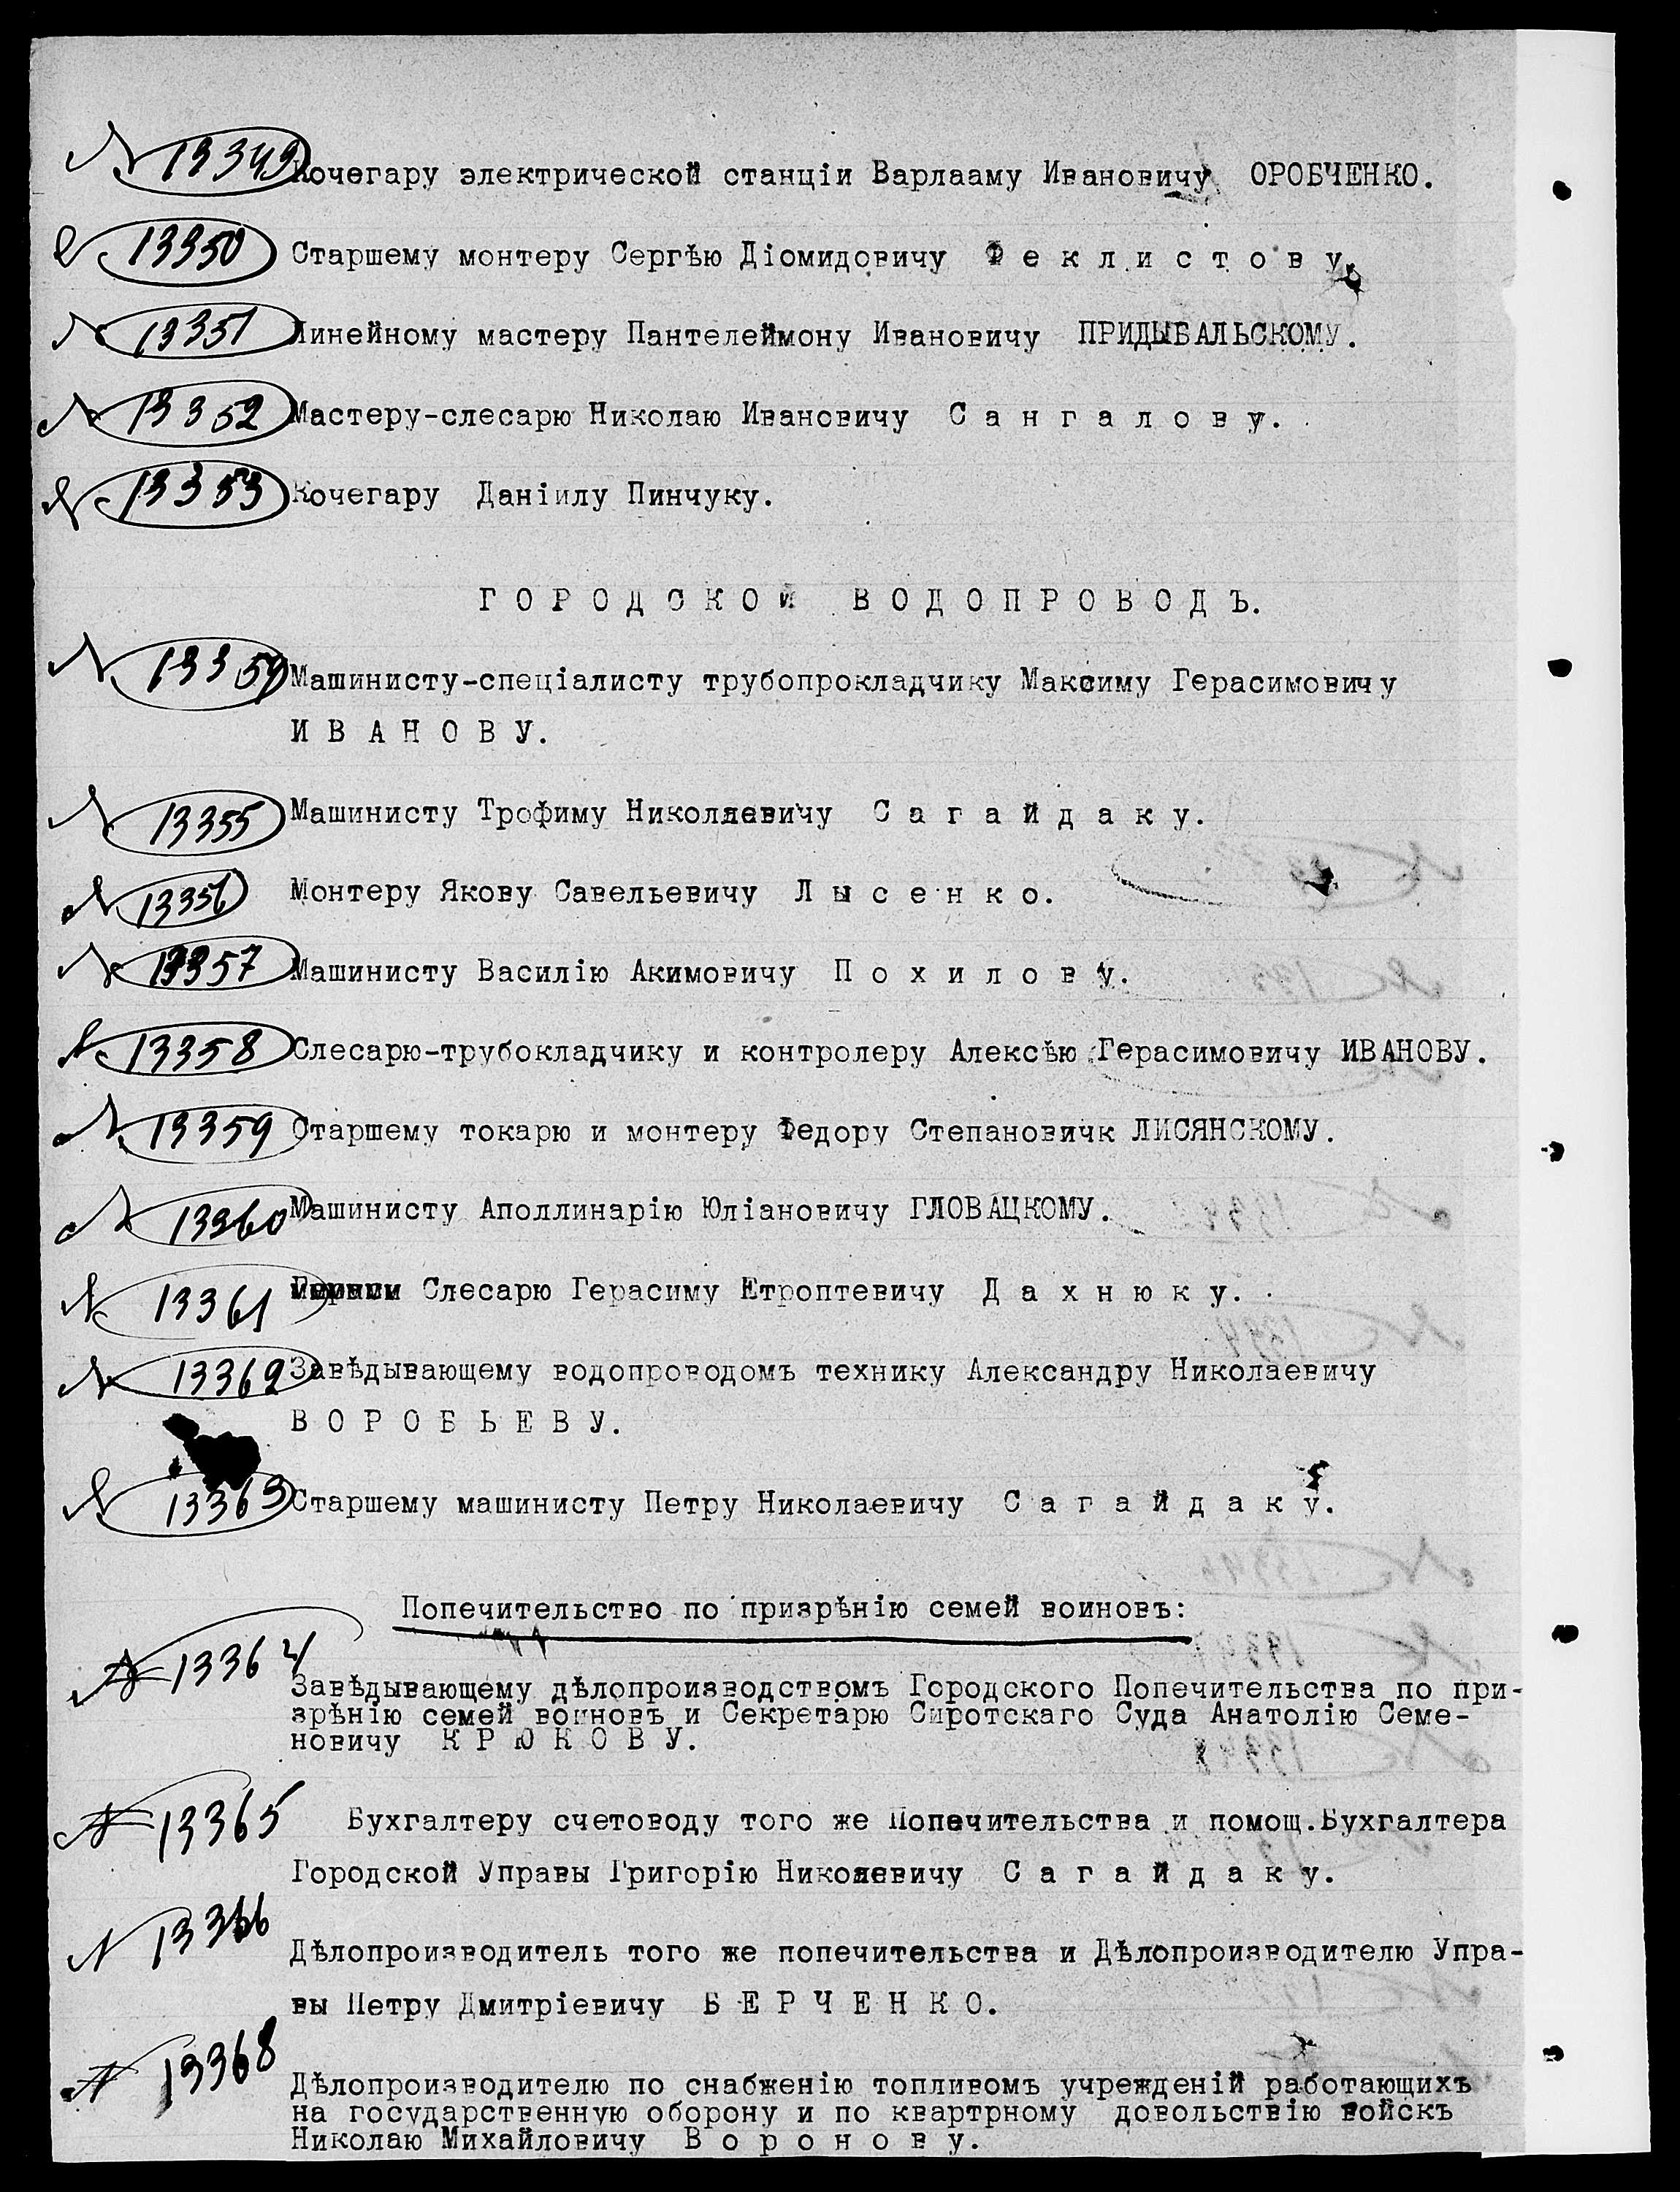 № 13349 Кочегару электрической станціи Варлааму Ивановичу ОРОБЧЕНКО.
№ 13350 Старшему монтеру Сергѣю Діомидовичу Феклистову.
№ 13351 Линейному мастеру Пантелеймону Ивановичу ПРИДЫБАЛЬСКОМУ.
№ 13352 Мастеру-слесарю Николаю Ивановичу Сангалову.
№ 13353 Кочегару Даніилу Пинчуку.
ГОРОДСКОЙ ВОДОПРОВОДЪ.
№ 13354 Машинисту-спеціалисту трубопрокладчику Максиму Герасимовичу
ИВАНОВУ.
№ 13355 Машинисту Трофиму Николаевичу Сагайдаку.
№ 13356 Монтеру Якову Савельевичу Лысенко.
№ 13357 Машинисту Василію Акимовичу Похилову.
№ 13358 Слесарю-трубокладчику и контролеру Алексѣю Герасимовичу ИВАНОВУ.
№ 13359 Старшему токарю и монтеру Федору Степановичк ЛИСЯНСКОМУ.
№ 13360 Машинисту Аполлинарію Юліановичу ГЛОВАЦКОМУ.
№ 13361 Слесарю Герасиму Етроптевичу Дахнюку.
№ 13362 Завѣдывающему водопроводомъ технику Александру Николаевичу
ВОРОБЬЕВУ.
№ 13363 Старшему машинисту Петру Николаевичу Сагайдаку.
Попечительство по призрѣнію семей воиновъ:
№ 13364
Завѣдывающему дѣлопроизводствомъ Городского Попечительства по при-
зрѣнію семей воиновъ и Секретарю Сиротскаго Суда Анатолію Семе-
новичу КРЮКОВУ.
№ 13365 Бухгалтеру счетоводу того же Попечительства и помощ.Бухгалтера
Городской Управы Григорію Николаевичу Сагайдаку.
№ 13366
Дѣлопроизводитель того же попечительства и Дѣлопроизводителю Упра-
вы Петру Дмитріевичу БЕРЧЕНКО.
№ 13368
Дѣлопроизводителю по снабженію топливомъ учрежденій работающихъ
на государственную оборону и по квартрному довольствію войскъ
Николаю Михайловичу Воронову.